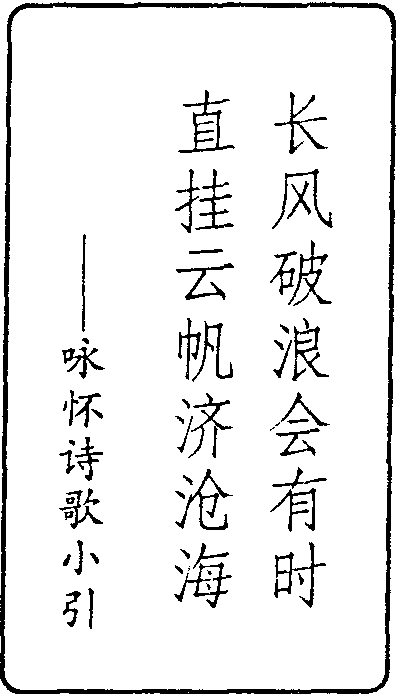 长风破浪会有时
直挂云帆济沧海
——咏怀诗歌小引